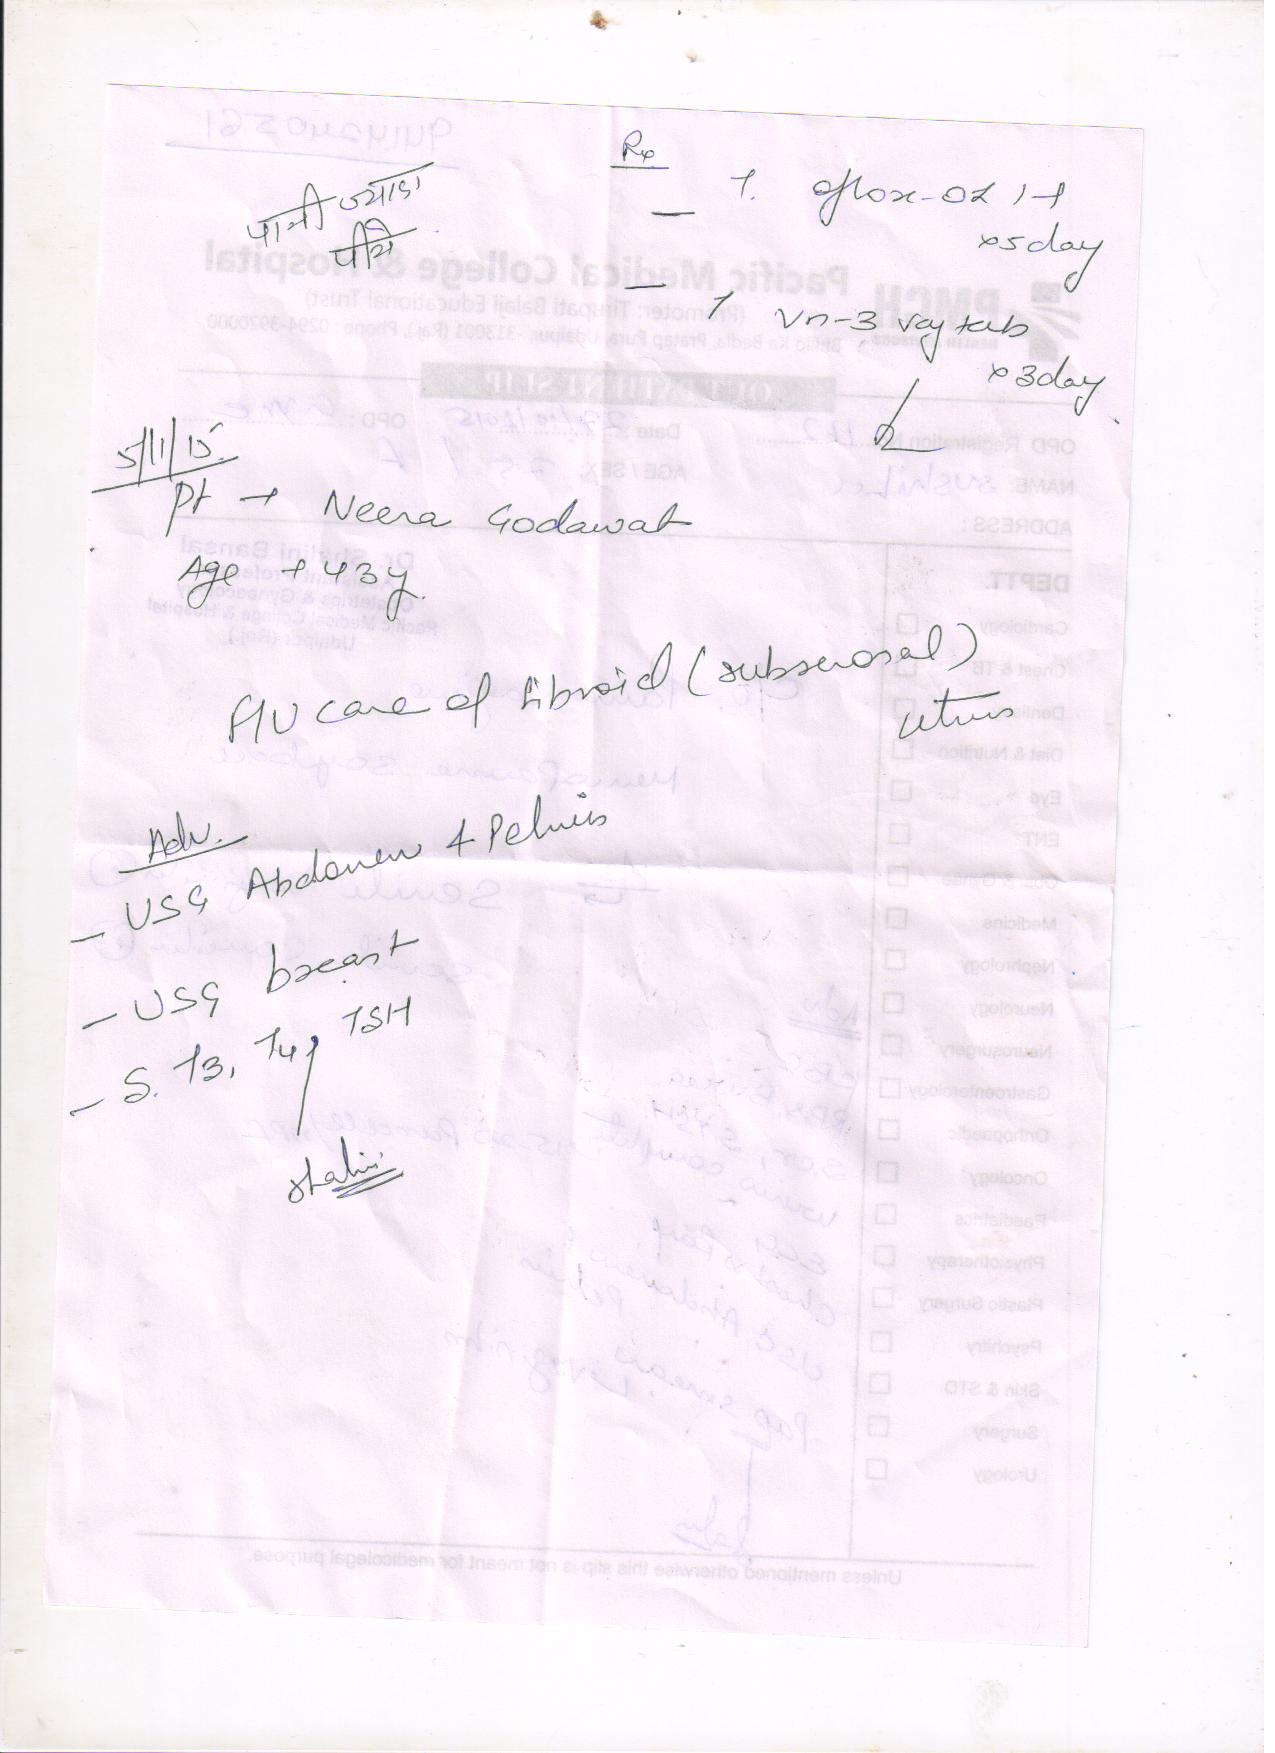 Rx
पानी ज्यादा
पीये
T. oflox-OZ 1-1
x5day
T Vn-3 vag tab
x3day
5/11/15
Pt → Neera Godawat
Age → 43y.
F/U case of fibroid (subserosal)
uterus
Adv.
- USG Abdomen & Pelvis
- USG breast
- S. T3, T4, TSH
Shalini
9414240561
PMCH Pacific Medical College & Hospital
(Promoter: Tirupati Balaji Educational Trust)
Bhilo Ka Bedla, Pratap Pura, Udaipur -313001 (Raj.), Phone : 0294-3920000
OUT PATIENT SLIP
OPD Registration N Date 27/10/2015 OPD :
NAME: Sushila AGE / SEX:
ADDRESS :
Dr. Shalini Bansal
Assistant Professor
Obstetrics & Gynaecology
Pacific Medical College & Hospital
Udaipur (Raj.)
DEPTT.
Cardiology
Chest & TB
Dental
Diet & Nutrition
Eye
ENT
Obs. & Gynae
Medicine
Nephrology
Neurology
Neurosurgery
Gastroenterology
Orthopaedic
Oncology
Paediatrics
Physiotherapy
Plastic Surgery
Psychitry
Skin & STD
Surgery
Urology
Adv
CBC
USG Abdomen Pelvis
Pap smear
Unless mentioned otherwise this slip is not meant for medicolegal purpose.